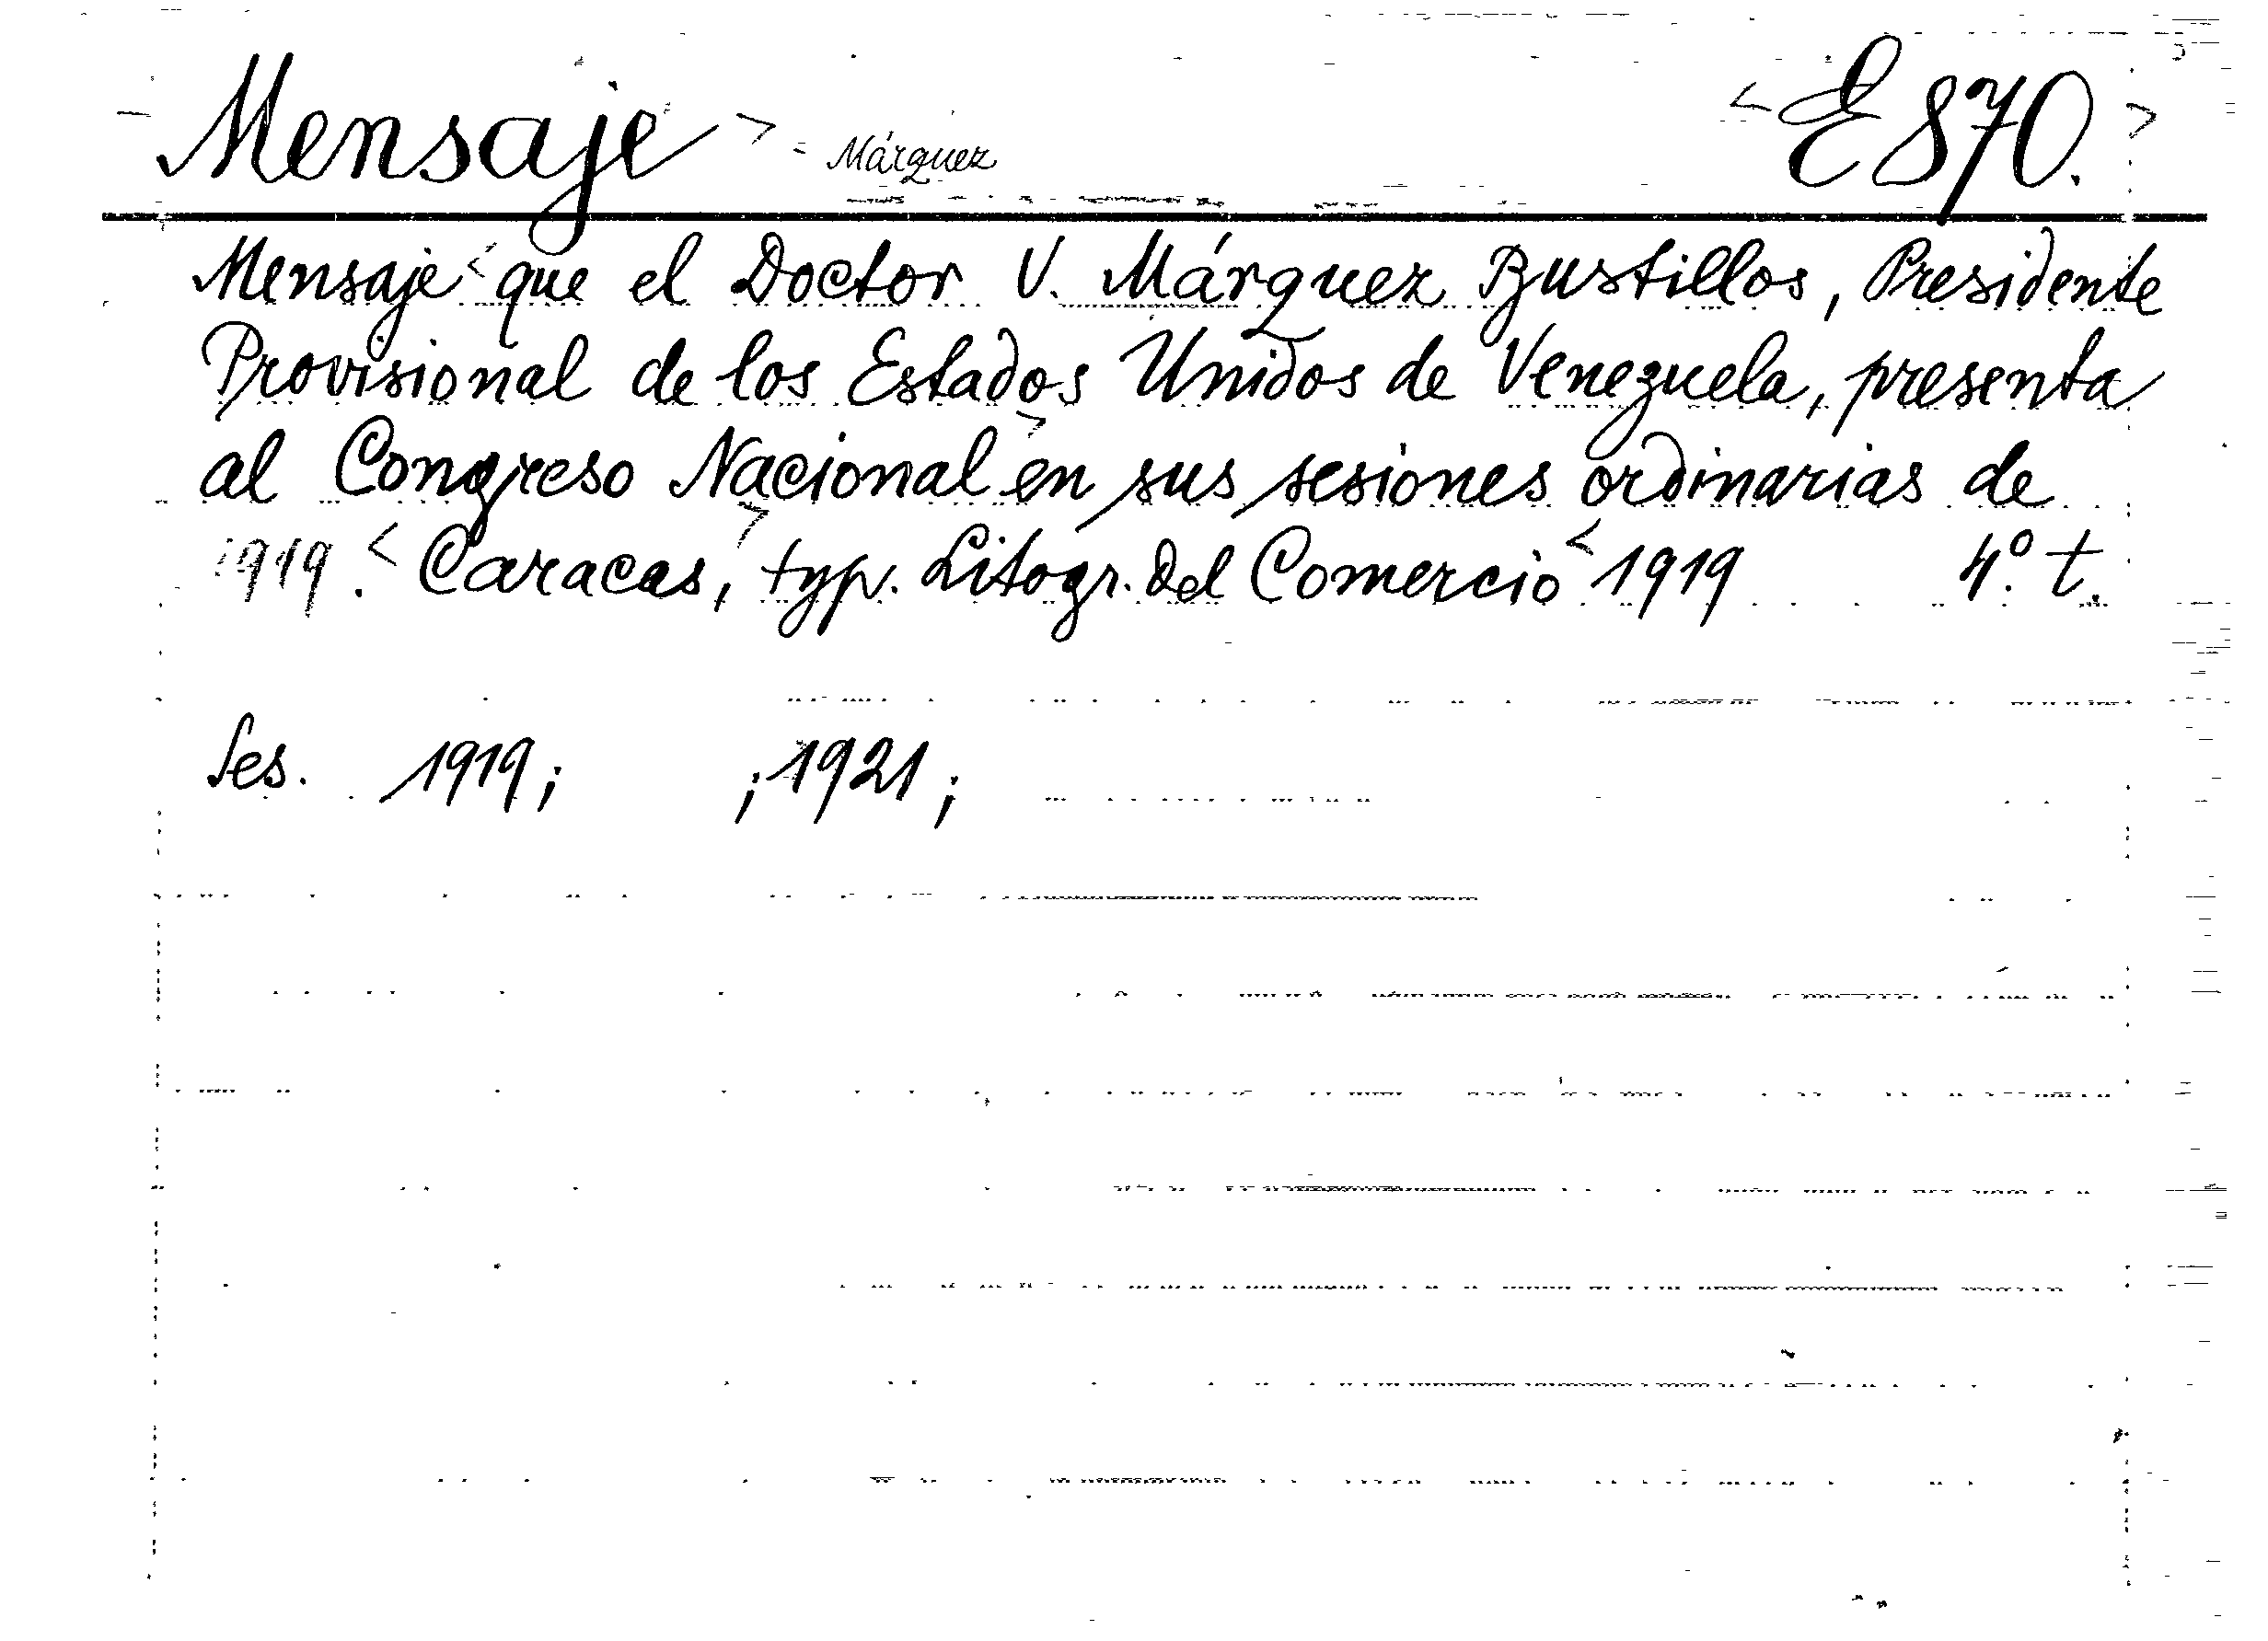 Mensaje Márquez E 870.
Mensaje que el Doctor V. Márquez Bustillos, Presidente
Provisional de los Estados Unidos de Venezuela, presenta
al Congreso Nacional en sus sesiones ordinarias de
1919. Caracas, typ. Litogr. del Comercio 1919 4.º t.
Ses. 1919; ; 1921;